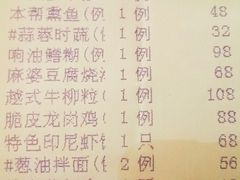 本帮熏鱼(例 1 例 48
#蒜蓉时蔬(例 1 例 32
响油鳝糊(例 1 例 98
麻婆豆腐烧 1 例 68
越式牛柳粒( 1 例 108
脆皮龙岗鸡( 1 例 88
特色印尼虾 1 只 68
#葱油拌面( 2 例 56